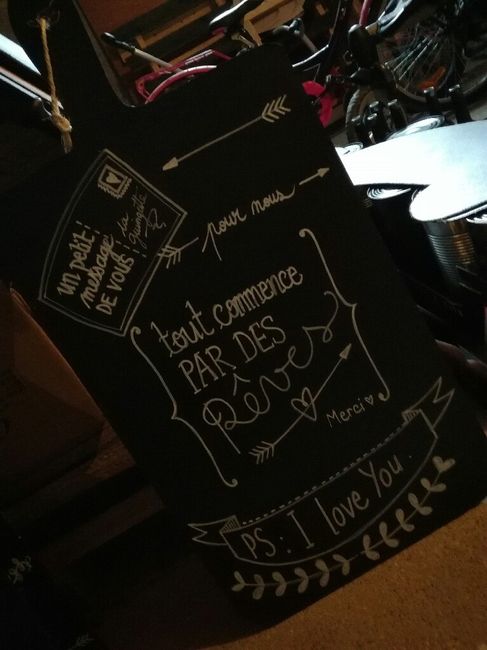 un petit
message
DE VOUS !
la guinguette
pour nous
tout commence
PAR DES
Rêves
Merci
PS : I love You.